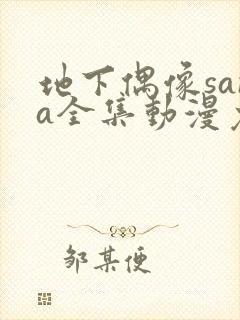 地下偶像sar
a全集動漫
邹某便